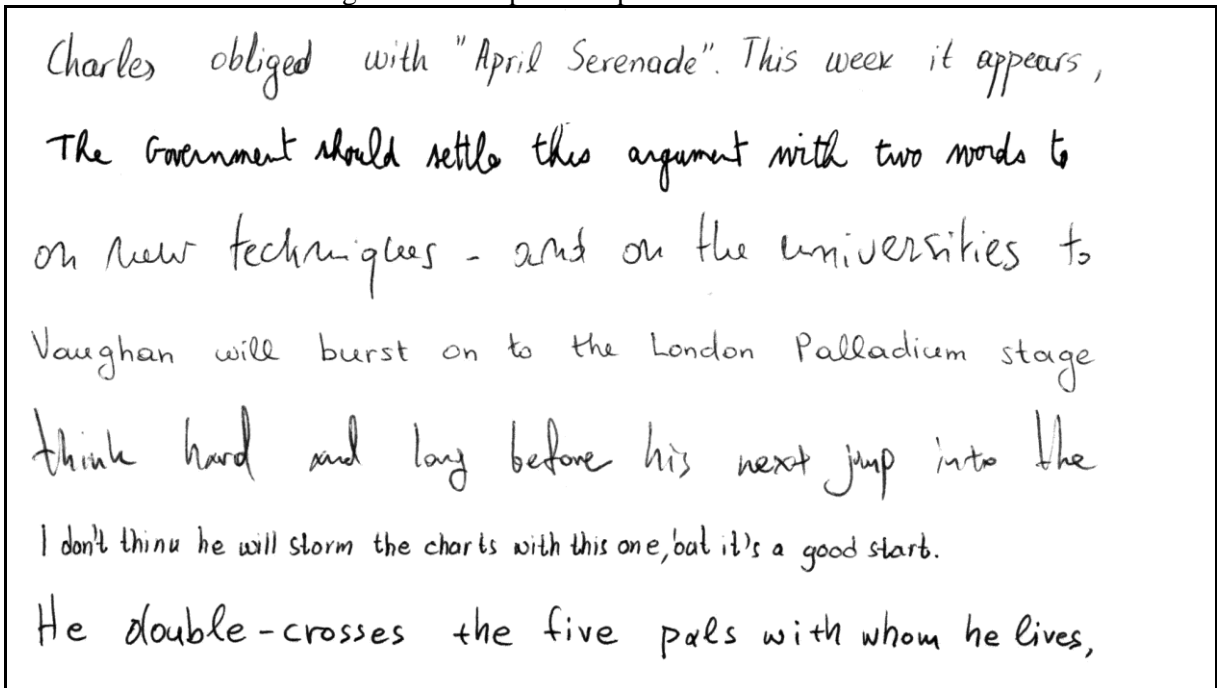 Charles obliged with "April Serenade". This week it appears,
The Government should settle this argument with two words to
on new techniques - and on the universities to
Vaughan will burst on to the London Palladium stage
think hard and long before his next jump into the
I don't think he will storm the charts with this one, but it's a good start.
He double-crosses the five pals with whom he lives,